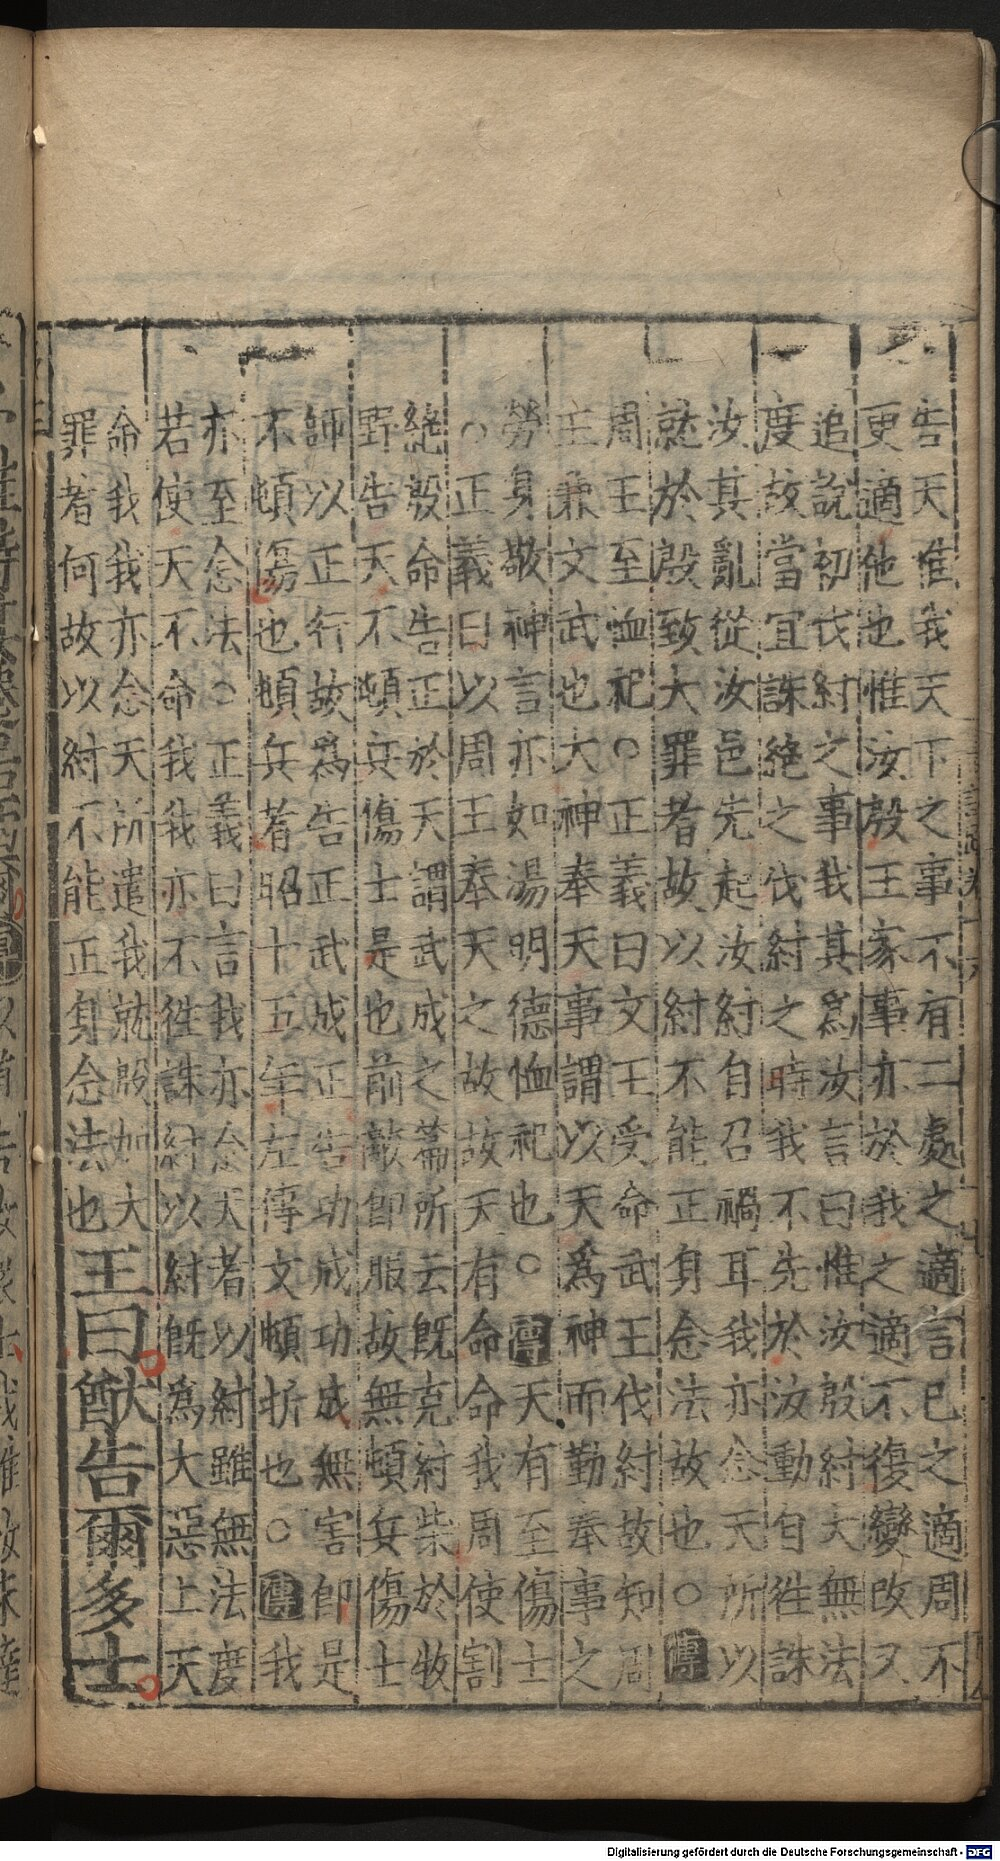 告天惟我天下之事不有二處之適言巳之適周不
更適他也惟汝殷王家事亦於我之適不復變改又
追說初伐紂之事我其為汝言曰惟汝殷紂大無法
度故當宜誅絕之伐紂之時我不先於汝動自往誅
汝其亂從汝邑先起汝紂自召禍耳我亦念天所以
就於殷致大罪者故以紂不能正身念法故也○傳
周王至恤祀○正義曰文王受命武王伐紂故知周
王兼文武也大神奉天事謂以天為神而勤奉事之
勞身敬神言亦如湯明德恤祀也○傳天有至傷士
○正義曰以周王奉天之故故天有命命我周使割
絕殷命告正於天謂武成之篇所云既克紂柴於牧
野告天不頓兵傷士是也前敵即服故無頓兵傷士
師以正行故爲告正武成正告功成功成無害即是
不頓傷也頓兵者昭十五年左傳文頓折也○傳我
亦至念法○正義曰言我亦念天者以紂雖無法度
若使天不命我我亦不往誅紂以紂既為大惡上天
命我我亦念天所遣我就殷加大
罪者何故以紂不能正身念法也王曰猷告爾多士
Digitalisierung gefördert durch die Deutsche Forschungsgemeinschaft - DFG